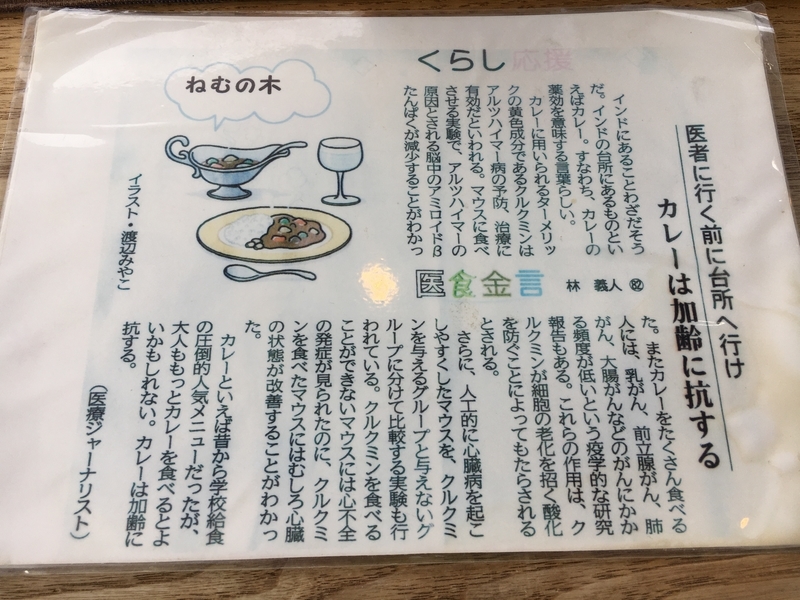 くらし応援
医者に行く前に台所へ行け
カレーは加齢に抗する
インドにあることわざだそう
だ。インドの台所にあるものとい
えばカレー。すなわち、カレーの
薬効を意味する言葉らしい。
カレーに用いられるターメリッ
クの黄色成分であるクルクミンは
アルツハイマー病の予防、治療に
有効だといわれる。マウスに食べ
させる実験で、アルツハイマーの
原因とされる脳中のアミロイドβ
たんぱくが減少することがわかっ
ねむの木
イラスト・渡辺みやこ
医食金言
林 義人 82
た。またカレーをたくさん食べる
人には、乳がん、前立腺がん、肺
がん、大腸がんなどのがんにかか
る頻度が低いという疫学的な研究
報告もある。これらの作用は、ク
ルクミンが細胞の老化を招く酸化
を防ぐことによってもたらされる
とされる。
さらに、人工的に心臓病を起こ
しやすくしたマウスを、クルクミ
ンを与えるグループと与えないグ
ループに分けて比較する実験も行
われている。クルクミンを食べる
ことができないマウスには心不全
の発症が見られたのに、クルクミ
ンを食べたマウスにはむしろ心臓
の状態が改善することがわかっ
た。
カレーといえば昔から学校給食
の圧倒的人気メニューだったが、
大人ももっとカレーを食べるとよ
いかもしれない。カレーは加齢に
抗する。
（医療ジャーナリスト）